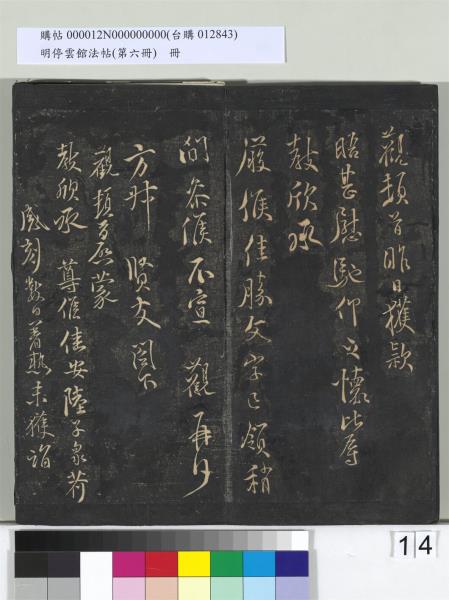 購帖 000012N000000000(台購 012843)
明停雲館法帖(第六冊) 冊
觀頓首昨日獲款
晤甚慰馳仰之懷比辱
教欣承
嚴候佳勝文字已領稍
間恭候不宣 觀再拜
方叔 賢友閣下
觀頓首啟蒙
教欣承 尊候佳安陸子泉荷
感刻數日暑熱未獲詣
14